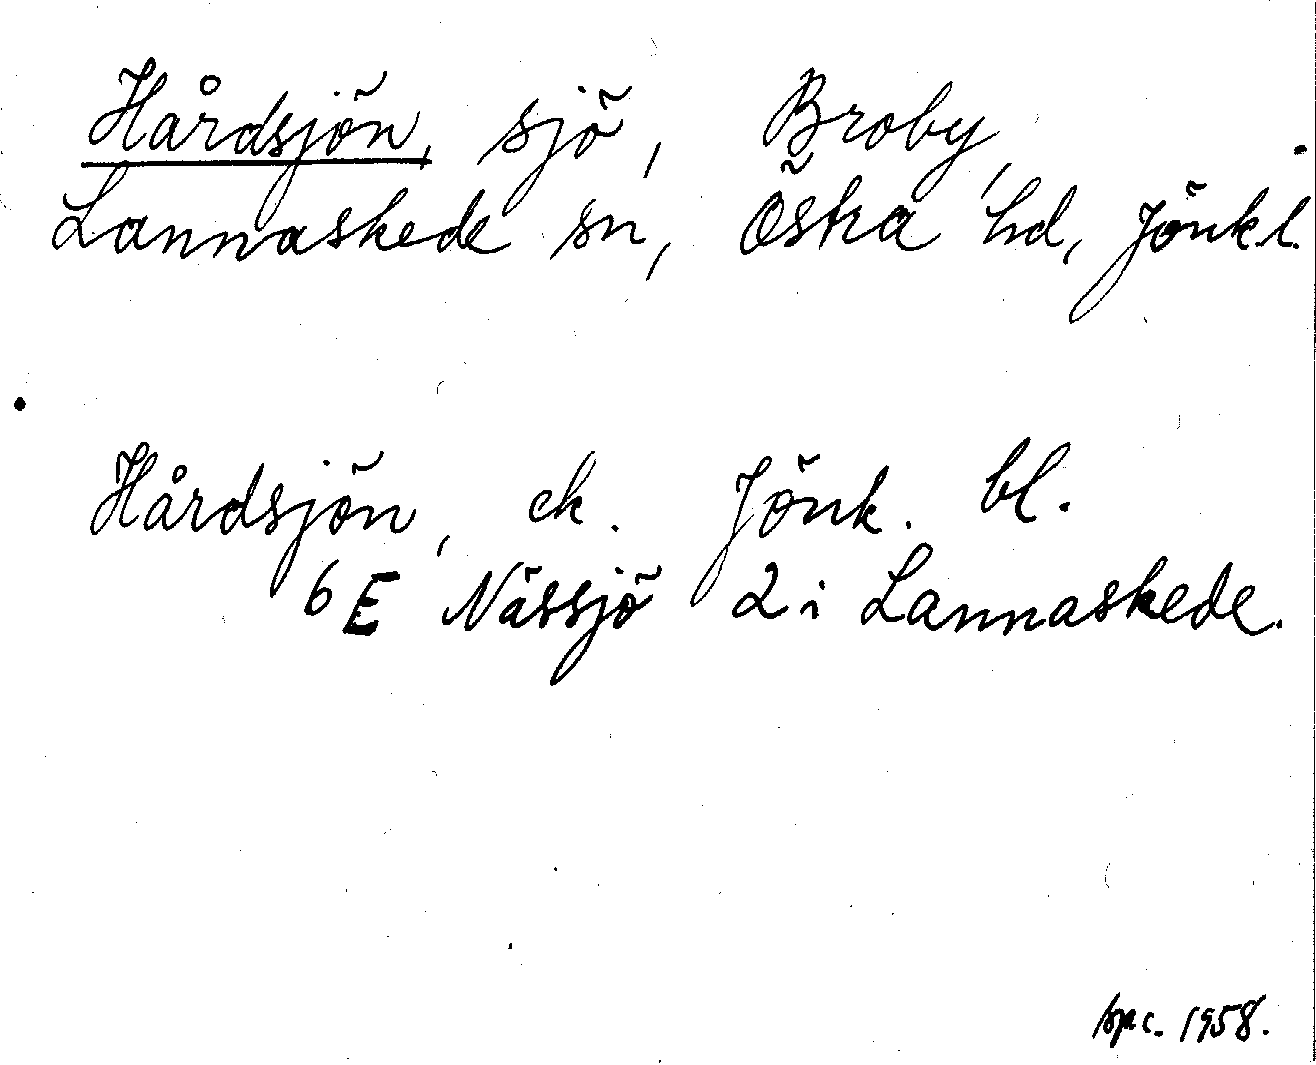 Hårdsjön, sjö, Broby,
Lannaskede sn, Östra hd, Jönk l.
Hårdsjön, ek. Jönk. bl.
6 E Nässjö 2 i Lannaskede.
1958.